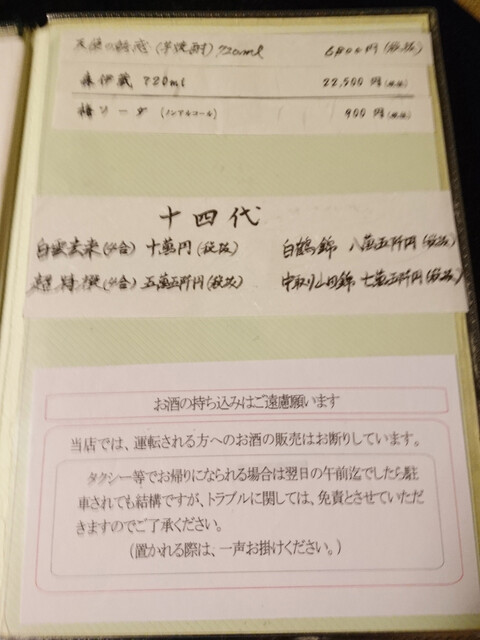 天使の誘惑 (芋焼酎) 720ml 6800円(税抜)
森伊蔵 720ml 22,500円(税抜)
梅ソーダ (ノンアルコール) 900円(税抜)
十四代
(4合) 十萬円(税抜) 白鶴錦 八萬五阡円(税抜)
(4合) 五萬五阡円(税抜) 中取り山田錦 七萬五阡円(税抜)
お酒の持ち込みはご遠慮願います
当店では、運転される方へのお酒の販売はお断りしています。
タクシー等でお帰りになられる場合は翌日の午前迄でしたら駐
車されても結構ですが、トラブルに関しては、免責とさせていただ
きますのでご了承ください。
(置かれる際は、一声お掛けください。)